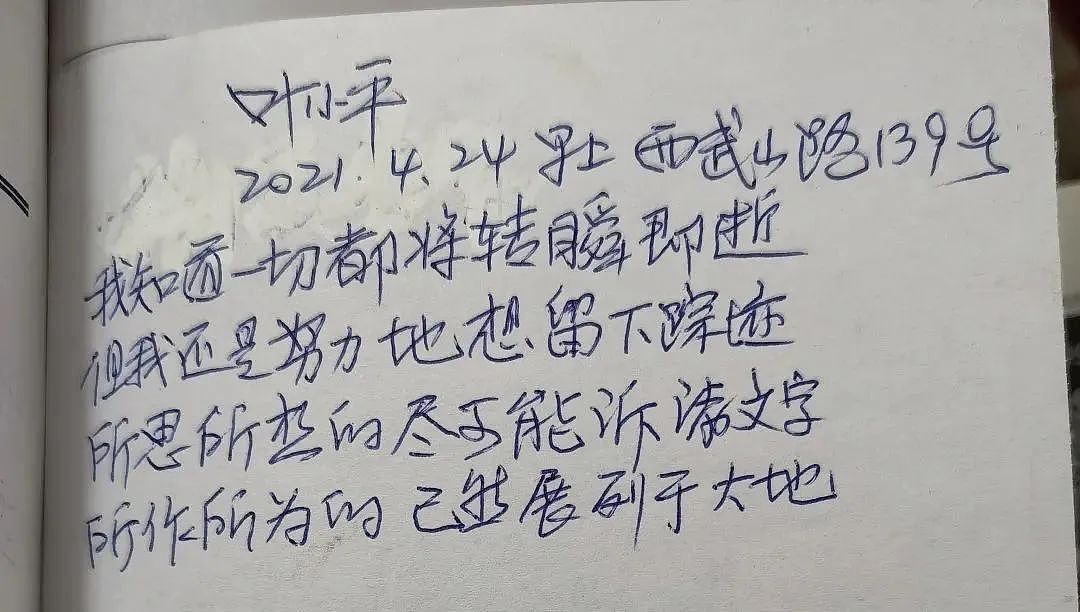 叶小平
2021.4.24 早上 西武山路139号
我知道一切都将转瞬即逝
但我还是努力地想留下踪迹
所思所想的尽可能诉诸文字
所作所为的已然展列于大地